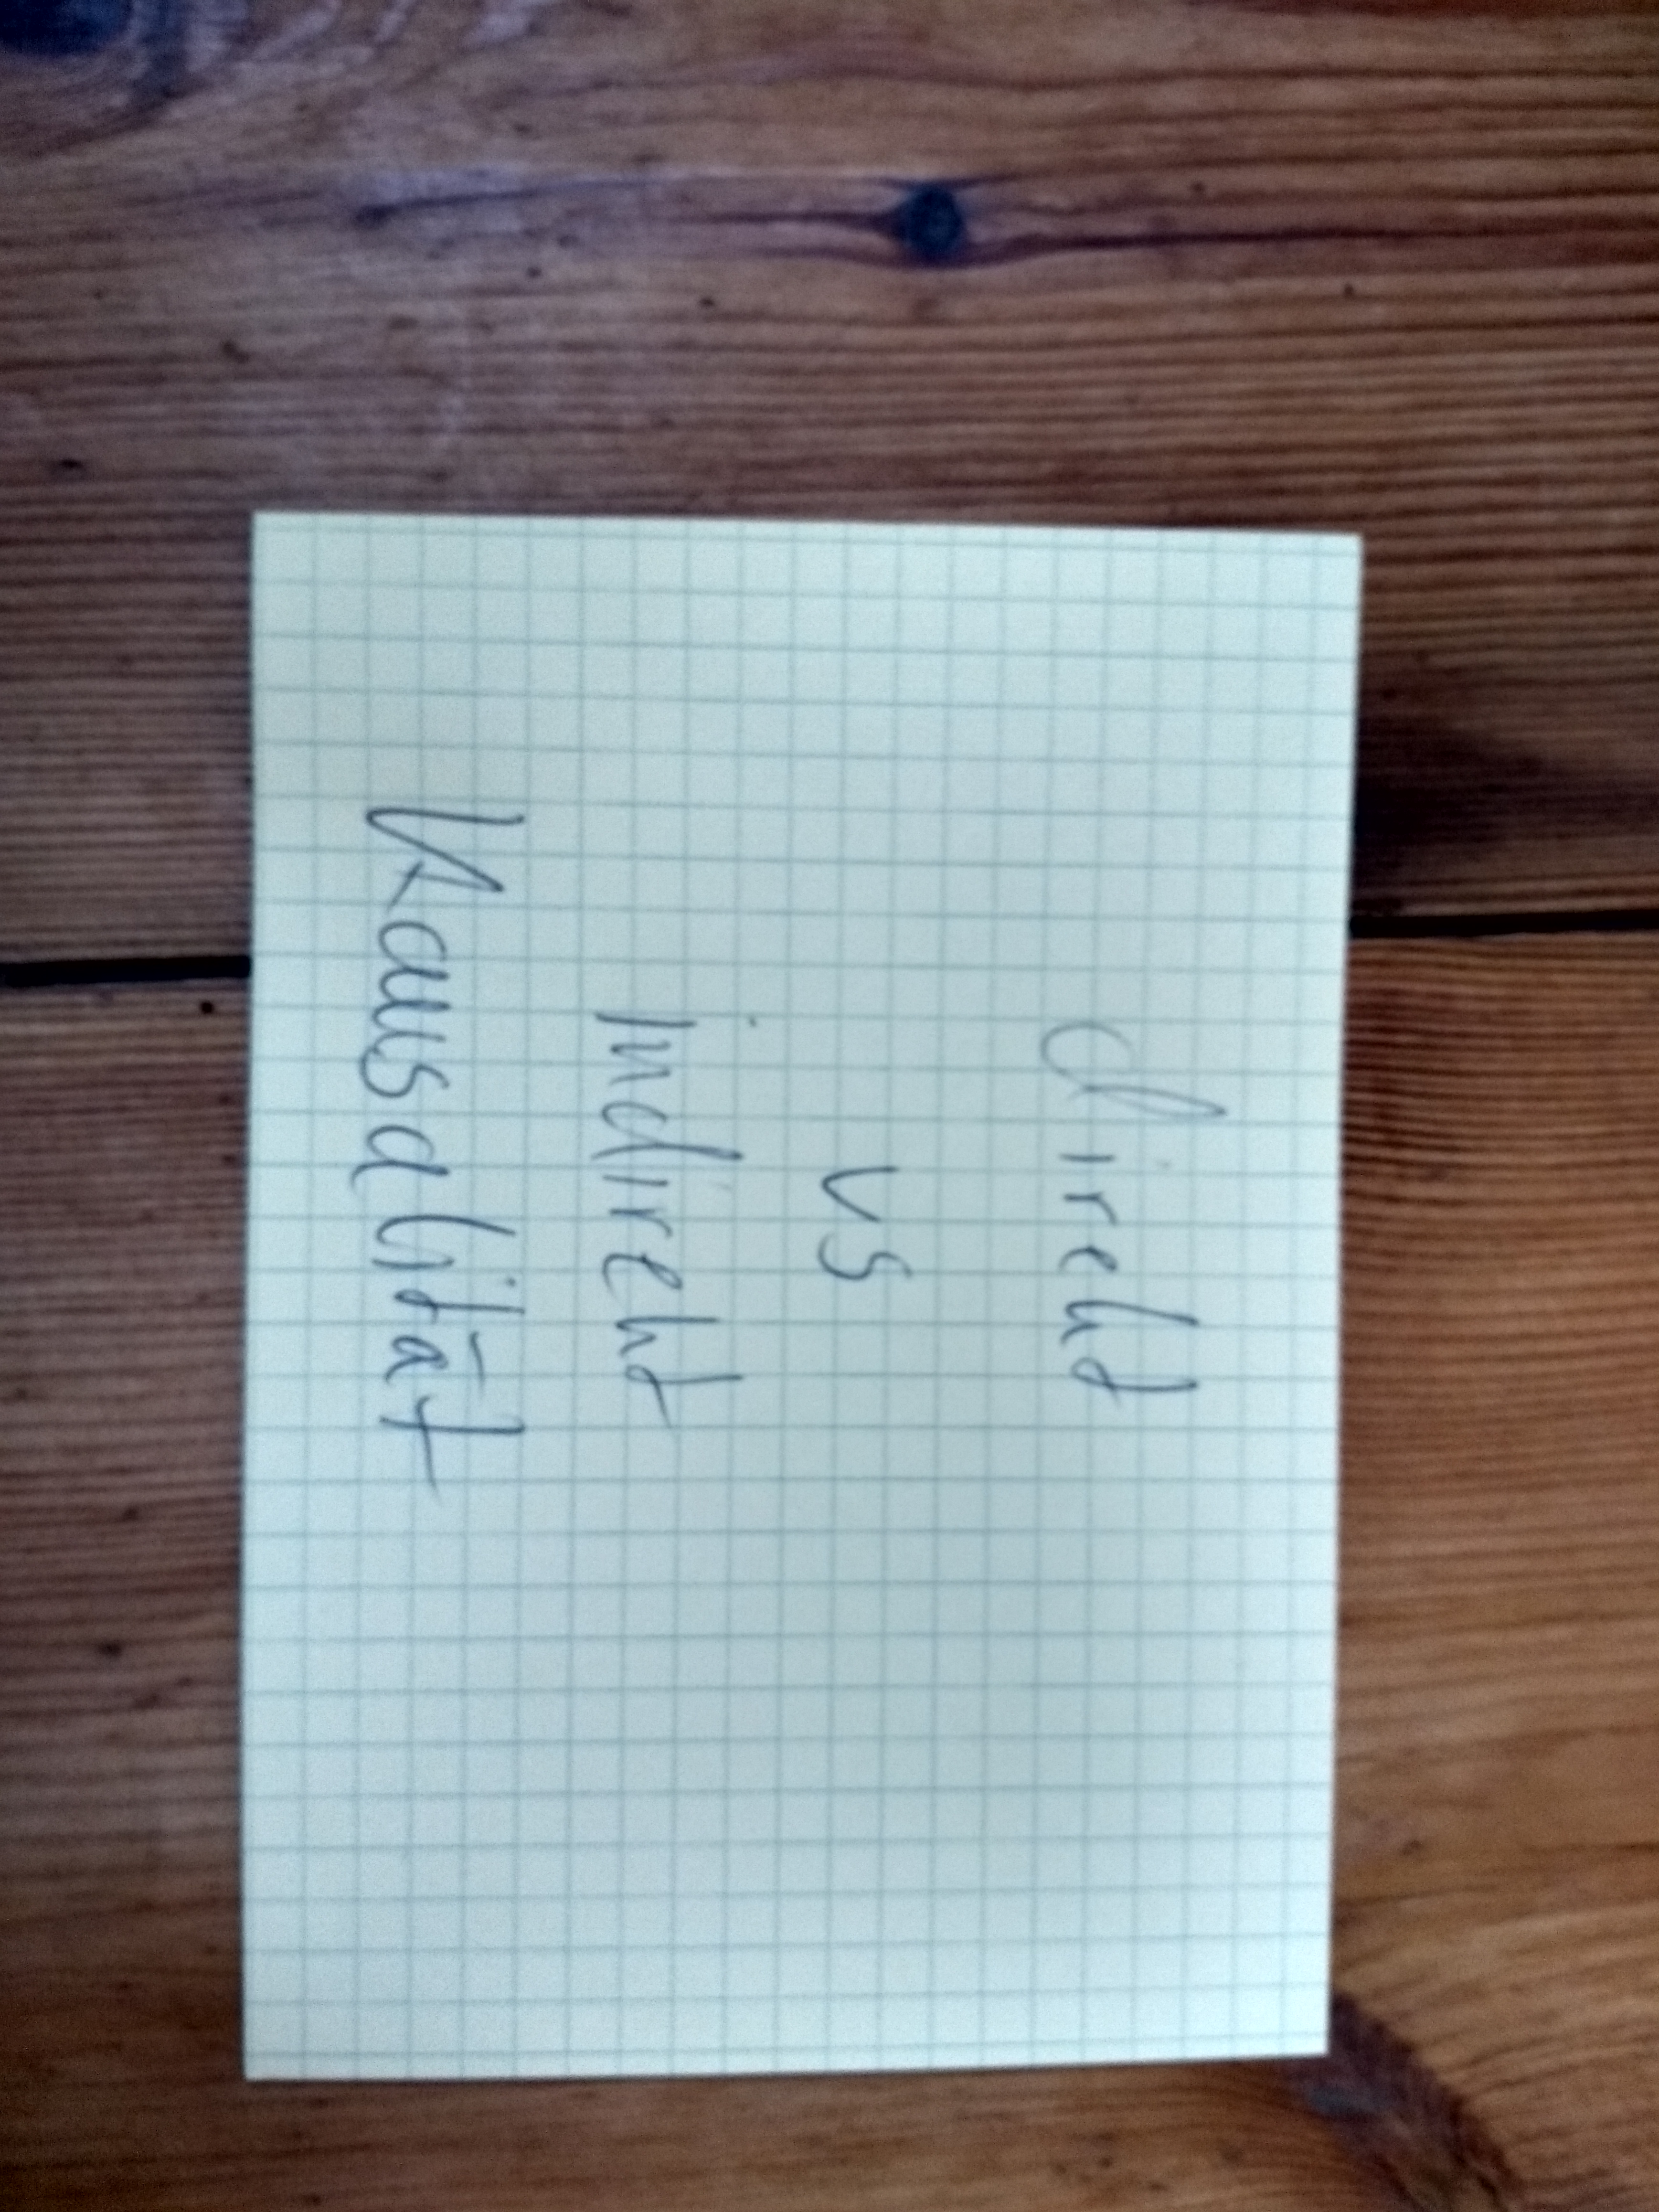 direkt
vs
indirekt
Kausalität